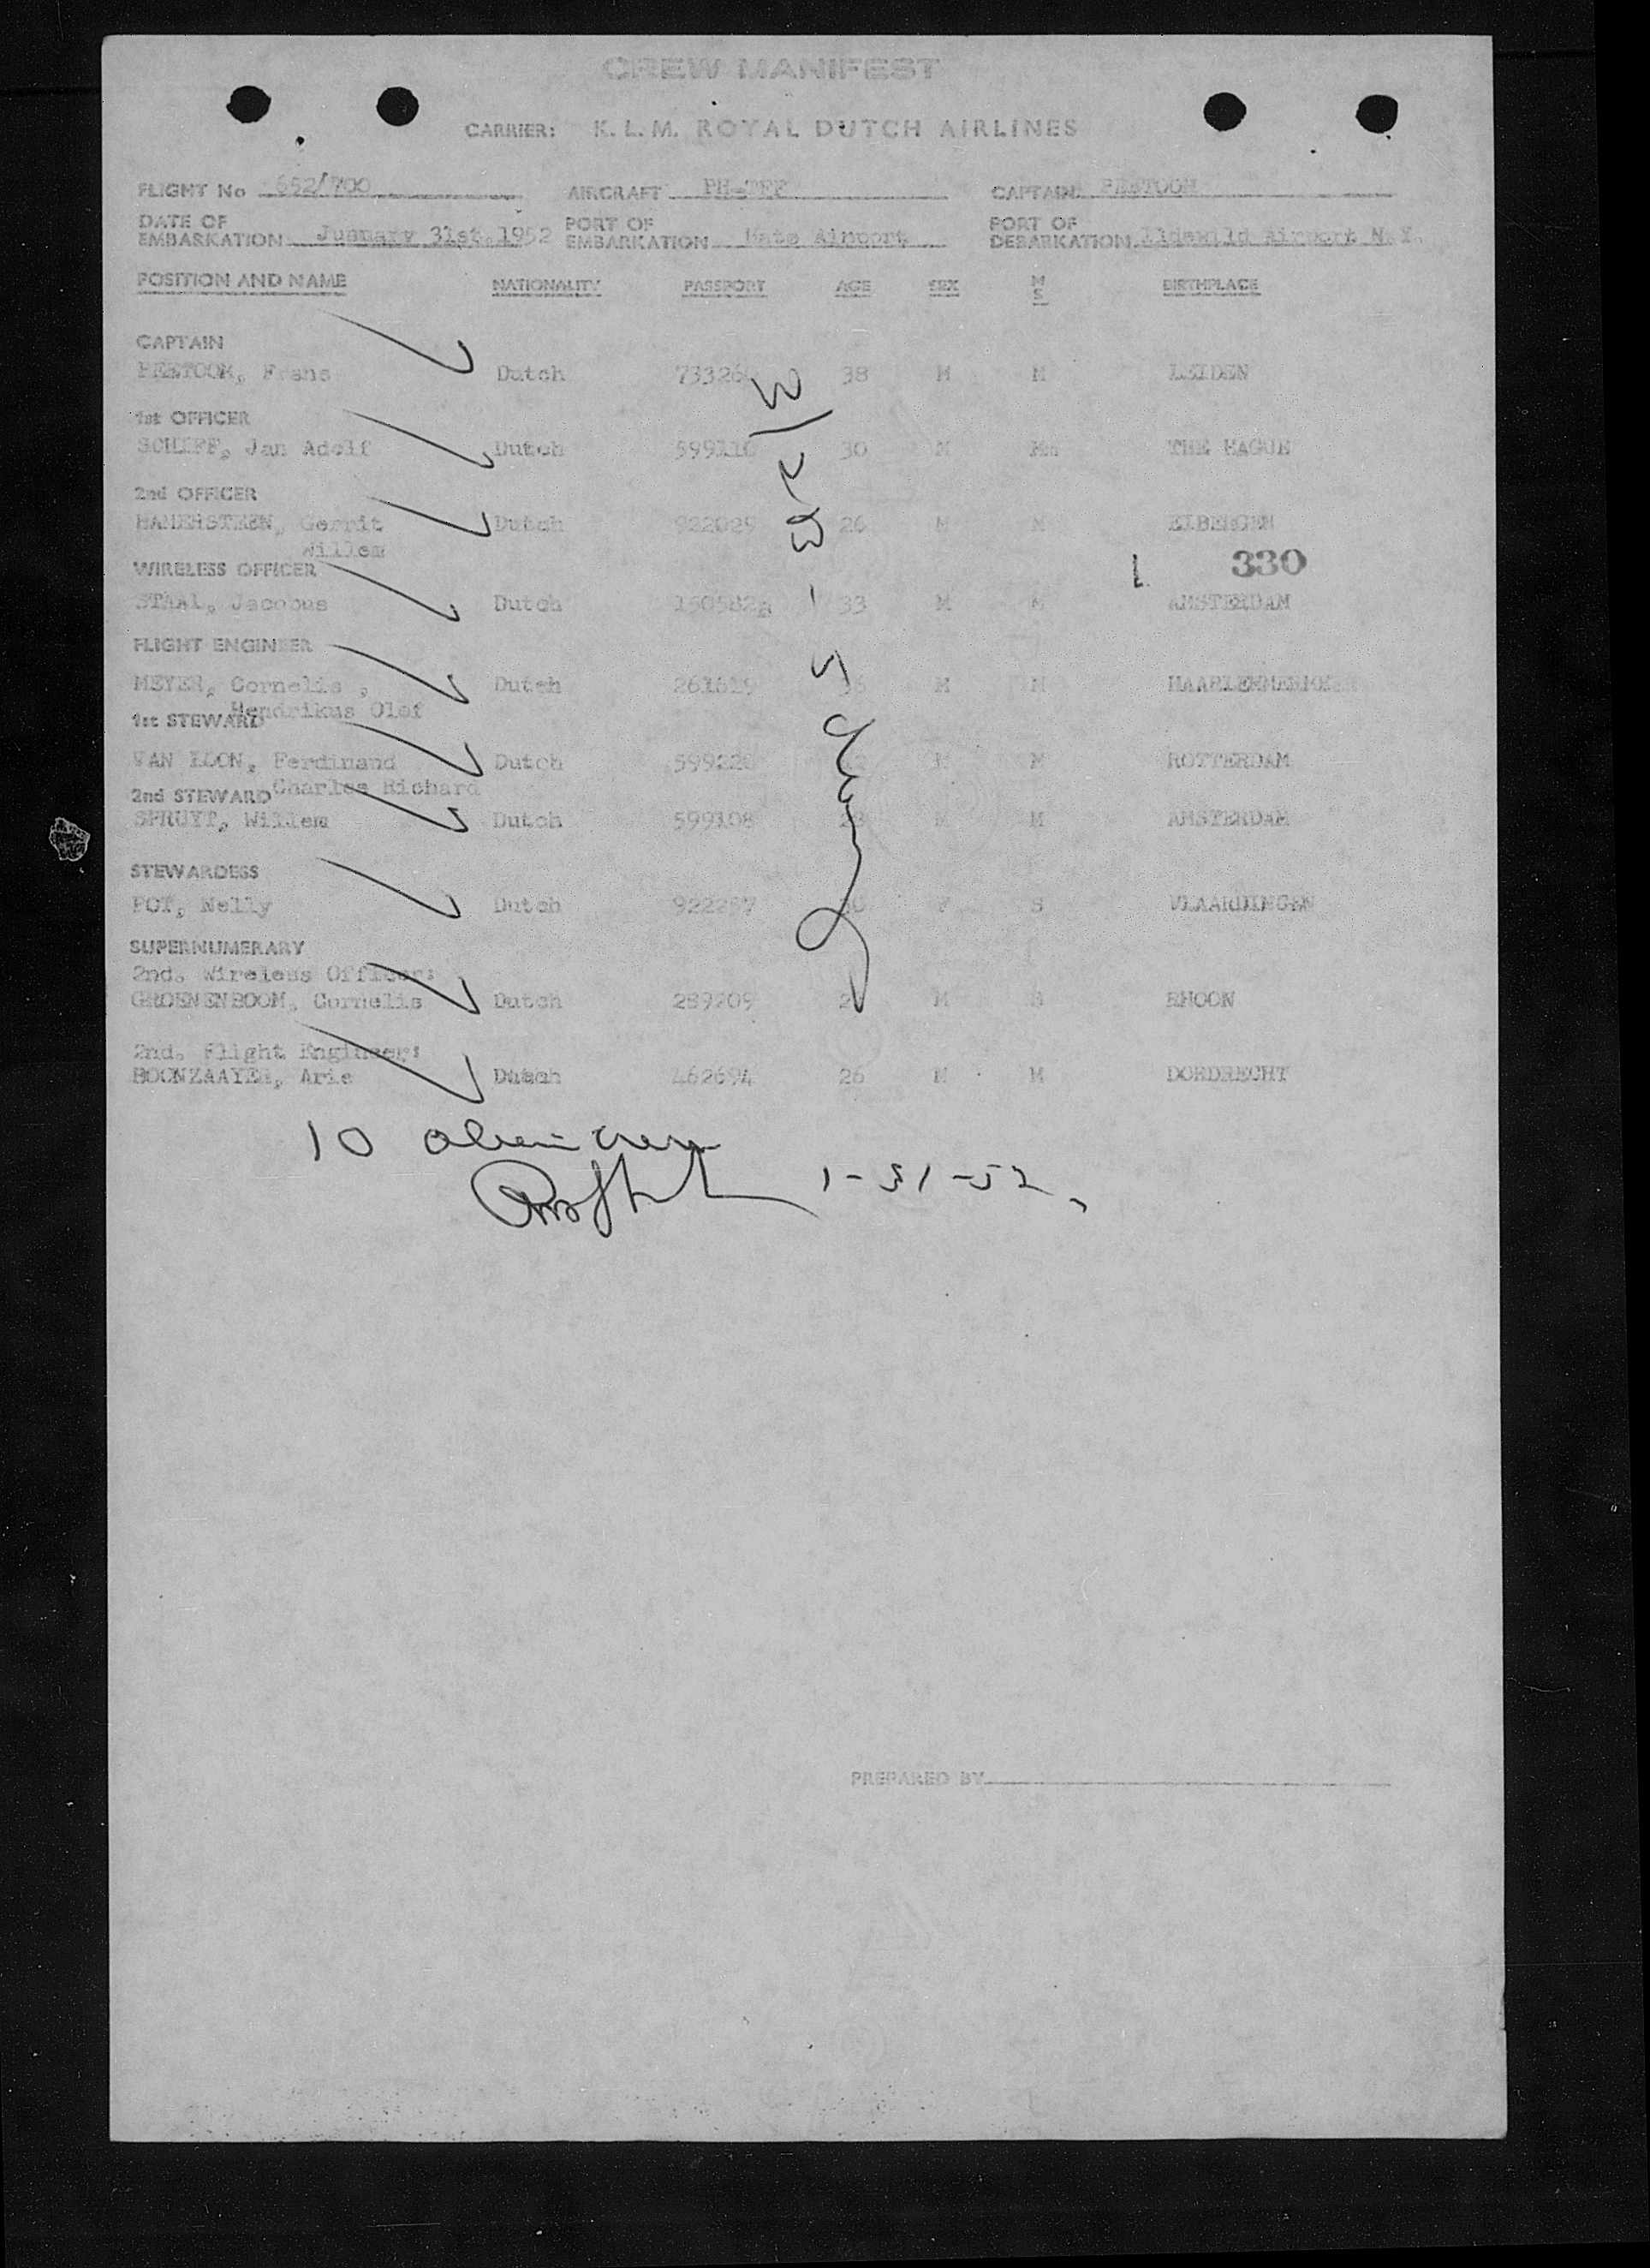 CREW MANIFEST
CARRIER: K. L. M. ROYAL DUTCH AIRLINES
FLIGHT No 652/700 AIRCRAFT PH-TFF CAPTAIN
DATE OF EMBARKATION January 31st.1952 PORT OF EMBARKATION Airport PORT OF DEBARKATION Idlewild Airport N.Y.
POSITION AND NAME NATIONALITY PASSPORT AGE SEX M S BIRTHPLACE
CAPTAIN
Frans Dutch 38 M M LEIDEN
1st OFFICER
Jan Adolf Dutch 30 M THE HAGUE
2nd OFFICER
Gerrit Dutch 922029 26 M M
Willem
330
WIRELESS OFFICER
STAAL, Jacobus Dutch 33 M M AMSTERDAM
FLIGHT ENGINEER
MEYER, Cornelis, Dutch M M HAARLEMMERMEER
Hendrikus Olof
1st STEWARD
VAN LOON, Ferdinand Dutch M M ROTTERDAM
Charles Richard
2nd STEWARD
SPRUYT, Willem Dutch 599108 M M AMSTERDAM
STEWARDESS
POT, Nelly Dutch F S VLAARDINGEN
SUPERNUMERARY
2nd. Wireless Officer:
GROENENBOOM, Cornelis Dutch 289209 M S RHOON
2nd. Flight Engineer:
BOONZAAYER, Arie Dutch 462694 26 M M DORDRECHT
10 alien crew
1-31-52
PREPARED BY